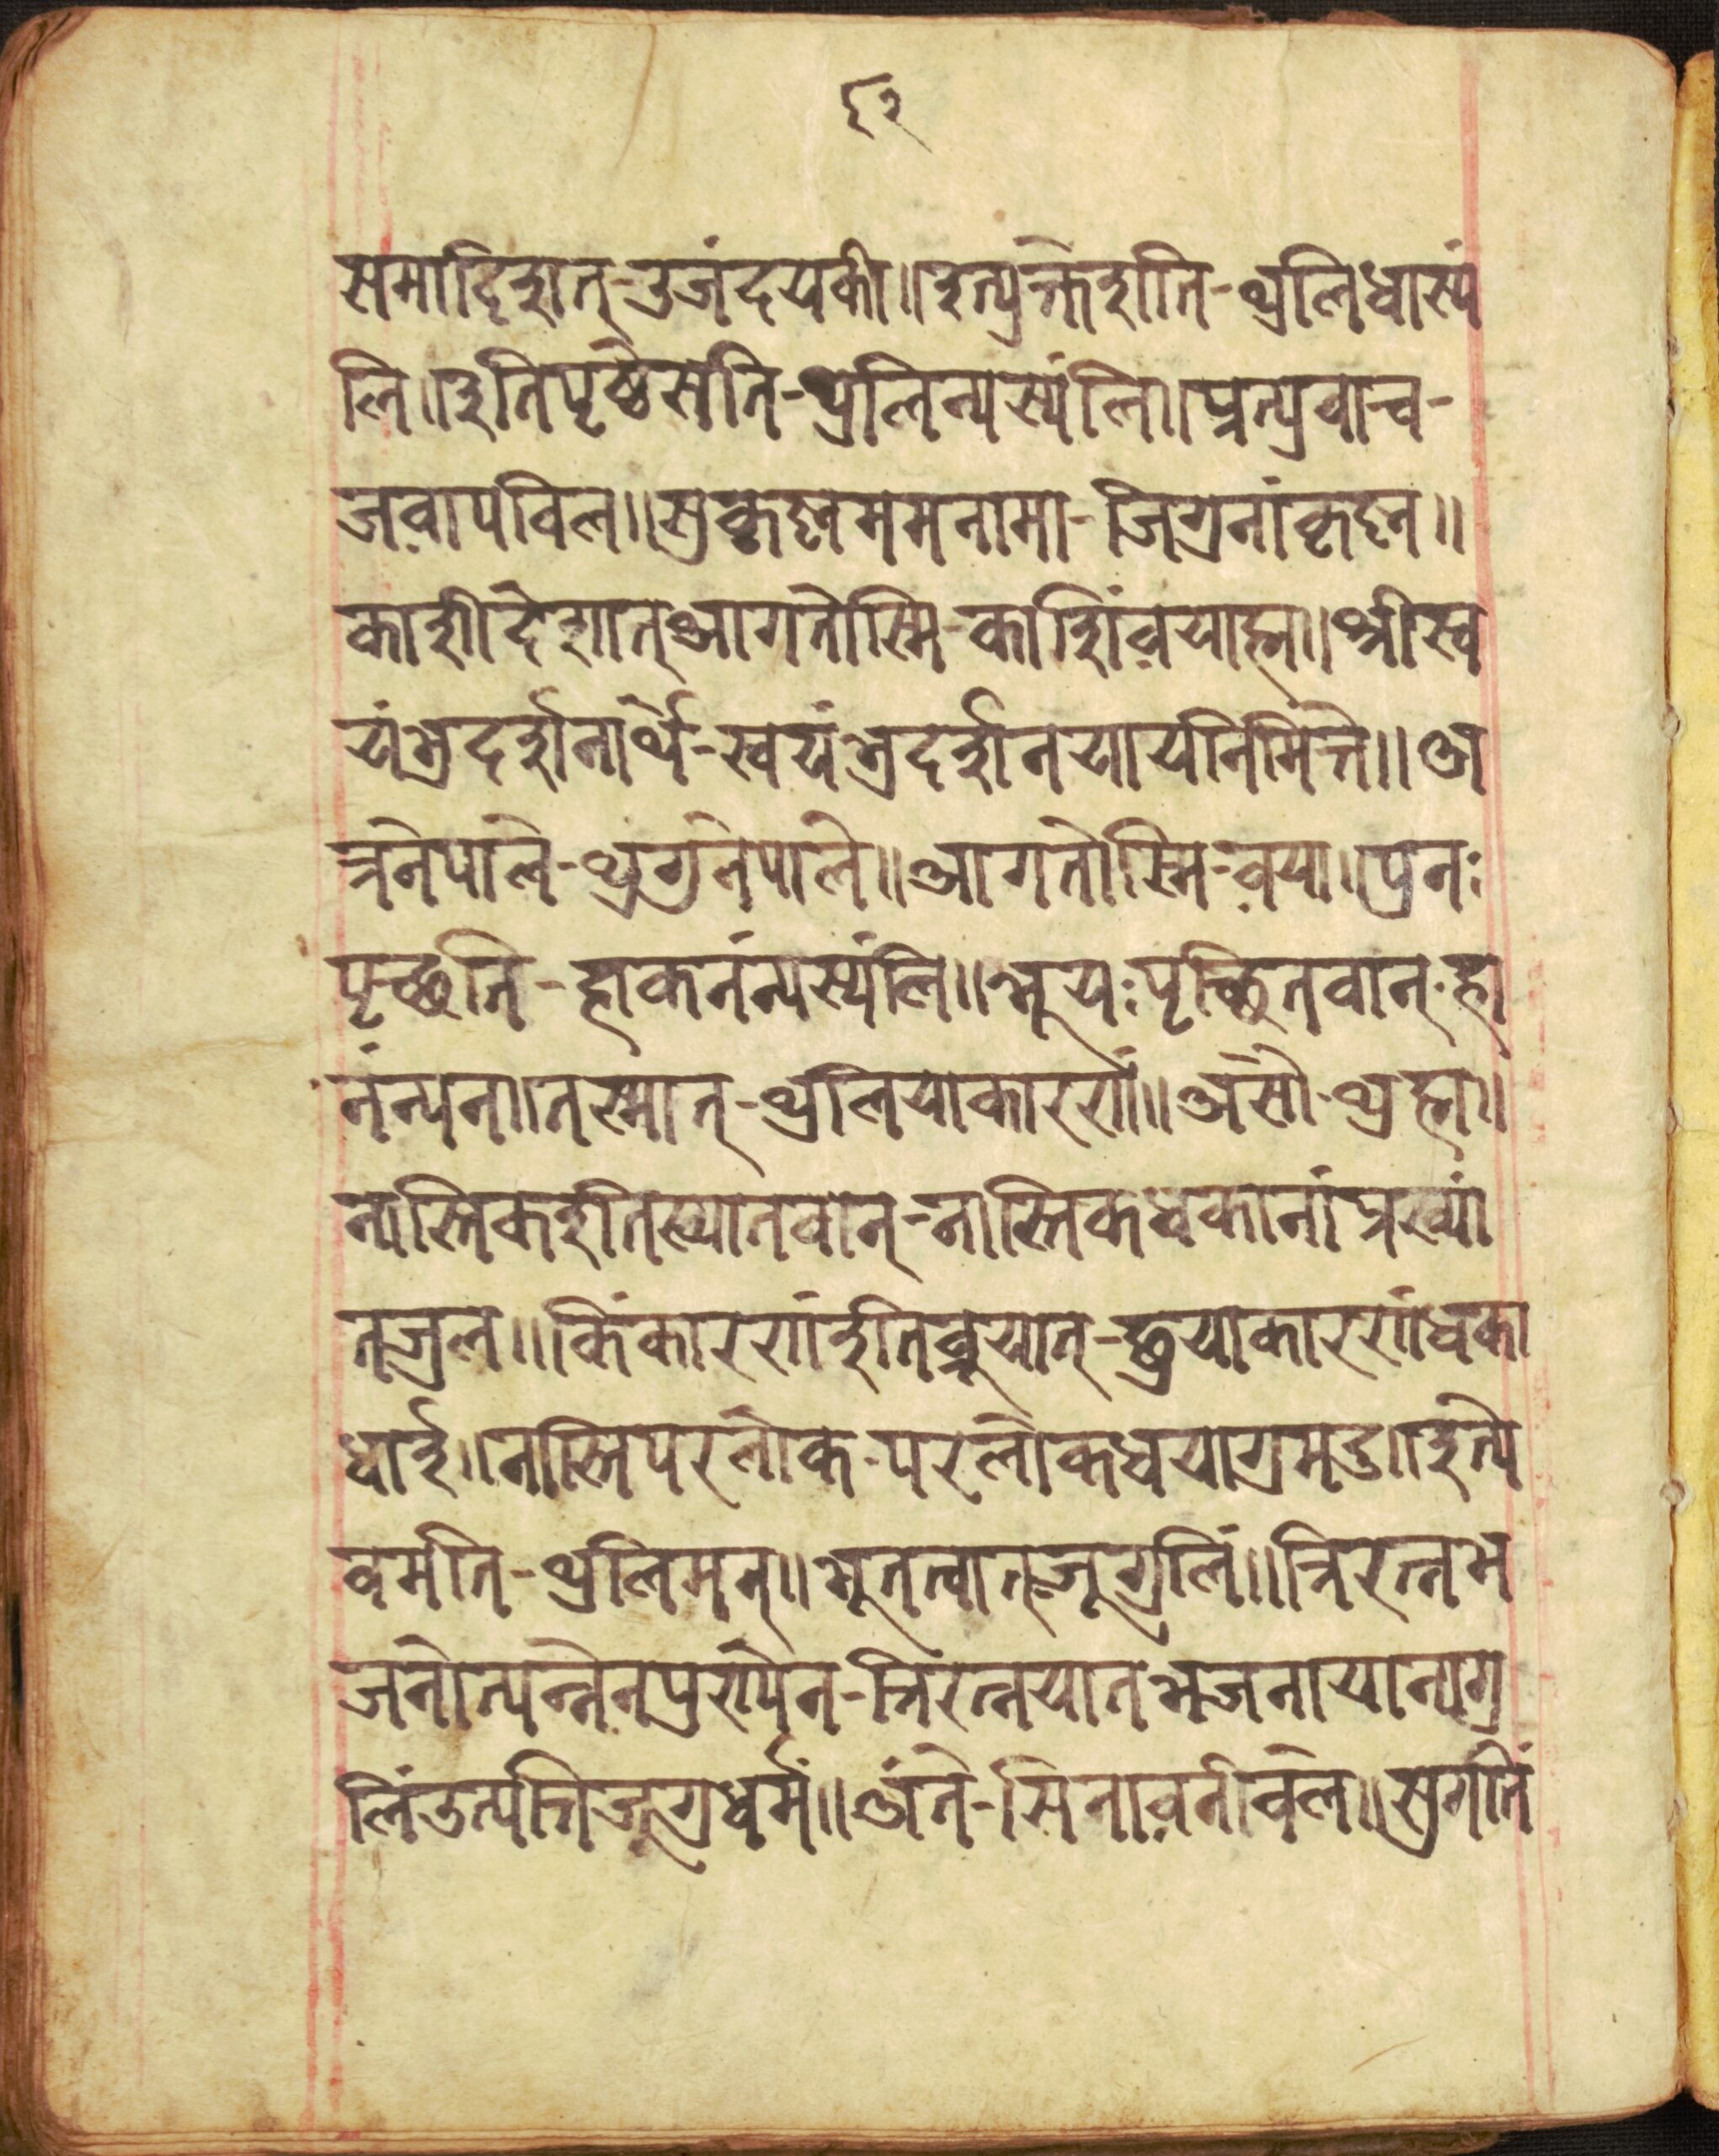 ६२
समादिशत्-उजंदयकी॥इत्युक्तेशति-थुलिधास्यं
लि॥इतिपृष्ठेसति-थुलिन्यस्यंलि॥प्रत्युवाच-
जवापविल॥सुकृह्नममनामा-जिगुनांकृह्न॥
काशीदेशात्आगतोस्मि-काशिंवयाह्न॥श्रीस्व
यंभुदर्शनार्थे-स्वयंभुदर्शनयायनिमित्ते॥अ
त्रनेपाले-थुगुनेपाले॥आगतोस्मि-वया॥पुनः
पृच्छति-हाकनंन्यस्यंलि॥भूयःपृच्छितवान्-हा
नंन्यन॥तस्मात्-थुलियाकारणं॥असौ-थुह्न॥
नास्तिकइतिख्यातवान्-नास्तिकधकानांप्रख्यां
तजुल॥किंकारणंइतिब्रुयात्-छुयाकारणंधका
धाई॥नास्तिपरलोक-परलोकधयागुमदु॥इत्ये
वमति-थुलिमन्॥भूतत्वात्-जूगुलिं॥त्रिरत्नभ
जनोत्पन्नेनपुण्येन-त्रिरत्नयातभजनायानागु
लिंउत्पत्तिजूगुधर्मं॥अंते-सिनावनीवले॥सुगतिं